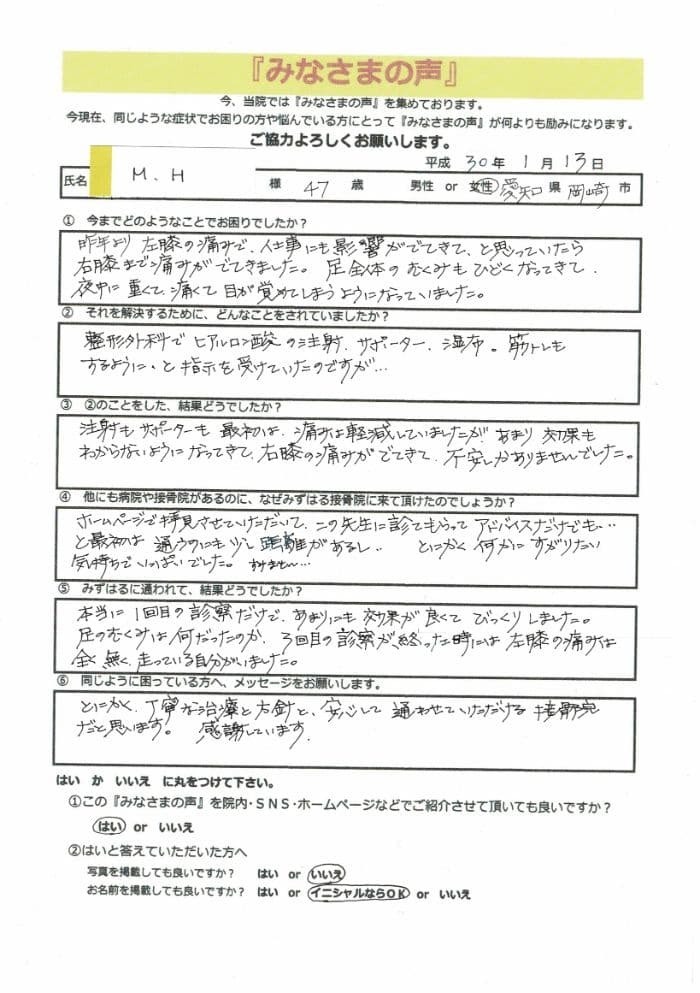 『みなさまの声』
今、当院では『みなさまの声』を集めております。
今現在、同じような症状でお困りの方や悩んでいる方にとって『みなさまの声』が何よりも励みになります。
ご協力よろしくお願いします。
平成 30年 1月 13日
氏名 M.H 様 47 歳 男性 or 女性 愛知県 岡崎市
① 今までどのようなことでお困りでしたか?
昨年より 左膝の痛みで、仕事にも影響がでてきて、と思っていたら
右膝まで痛みがでてきました。 足全体のむくみもひどくなってきて、
夜中に重くて、痛くて目が覚めてしまうようになっていました。
② それを解決するために、どんなことをされていましたか?
整形外科で ヒアルロン酸の注射、サポーター、湿布。筋トレも
するように、と指示を受けていたのですが…
③ ②のことをした、結果どうでしたか?
注射もサポーターも 最初は、痛みは軽減していましたが あまり 効果も
わからないようになってきて、右膝の痛みがでてきて、不安しかありませんでした。
④ 他にも病院や接骨院があるのに、なぜみずはる接骨院に来て頂けたのでしょうか?
ホームページで拝見させていただいて、この先生に診てもらって アドバイスだけでも…
と最初は 通うのにも少し距離があるし.. とにかく 何かにすがりたい
気持ちでいっぱいでした。 すみません…
⑤ みずはるに通われて、結果どうでしたか?
本当に1回目の診察だけで、あまりにも効果が良くてびっくりしました。
足のむくみは何だったのか、3回目の診察が終った時には 左膝の痛みは
全く無く、走っている自分がいました。
⑥ 同じように困っている方へ、メッセージをお願いします。
とにかく、丁寧な治療と方針と、安心して 通わせていただける 接骨院
だと思います。 感謝しています。
はい か いいえ に丸をつけて下さい。
①この『みなさまの声』を院内・SNS・ホームページなどでご紹介させて頂いても良いですか?
はい or いいえ
②はいと答えていただいた方へ
写真を掲載しても良いですか? はい or いいえ
お名前を掲載しても良いですか? はい or イニシャルならOK or いいえ